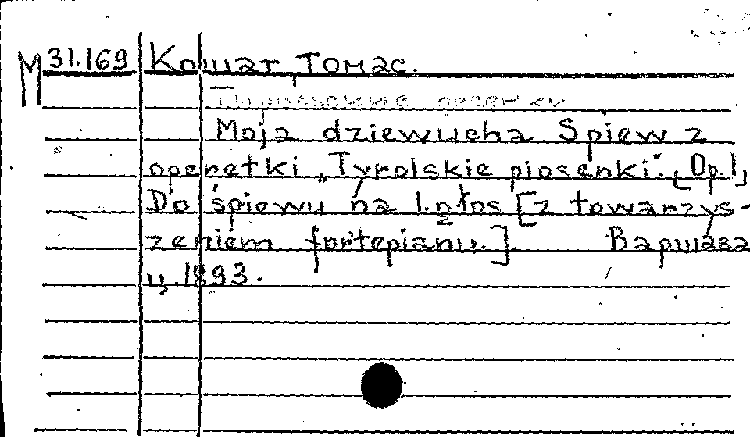 M 31.169 Кошат, Томас.
Moja dziewucha Śpiew z
operetki „Tyrolskie piosenki". [Op.],
Do śpiewu na 1. głos [z towarzys-
zeniem fortepianu.] Варшава
ц. 1893.